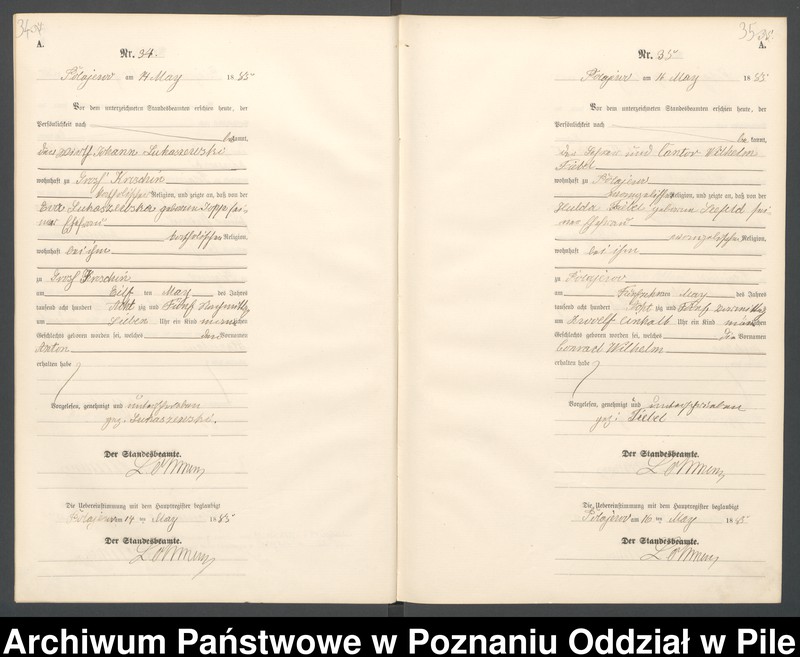 34
A.
Nr. 34.
Polajewo am 14 May 1885
Vor dem unterzeichneten Standesbeamten erschien heute, der
Persönlichkeit nach
bekannt,
Johann Lukaszewski
wohnhaft zu Gross Kroschin
katholischer Religion, und zeigte an, daß von der
Eva Lukaszewska geborenen Hoppe sei-
ner Ehefrau
katholischer Religion,
wohnhaft bei ihm
zu Gross Kroschin
am Eilf ten May des Jahres
tausend acht hundert Acht zig und Fünf Nachmittag
um Sieben Uhr ein Kind männlichen
Geschlechts geboren worden sei, welches den Vornamen
Anton
erhalten habe
Vorgelesen, genehmigt und unterschrieben
gez. Lukaszewski.
Der Standesbeamte.
Die Uebereinstimmung mit dem Hauptregister beglaubigt
Polajewo am 14 ten May 1885
Der Standesbeamte.
35
A.
Nr. 35
Polajewo am 16 May 1885
Vor dem unterzeichneten Standesbeamten erschien heute, der
Persönlichkeit nach
be kannt,
der Lehrer und Cantor Wilhelm
Fiebel
wohnhaft zu Polajewo
evangelischer Religion, und zeigte an, daß von der
Hulda Fiebel geborenen Seefeld sei-
ner Ehefrau
evangelischer Religion,
wohnhaft bei ihm
zu Polajewo
am Fünfzehnten May des Jahres
tausend acht hundert Acht zig und Fünf Vormittag
um Zwoelf einhalb Uhr ein Kind männlichen
Geschlechts geboren worden sei, welches die Vornamen
Conrad Wilhelm
erhalten habe
Vorgelesen, genehmigt und unterschrieben
gez: Fiebel
Der Standesbeamte.
Die Uebereinstimmung mit dem Hauptregister beglaubigt
Polajewo am 16 ten May 1885
Der Standesbeamte.
Archiwum Państwowe w Poznaniu Oddział w Pile